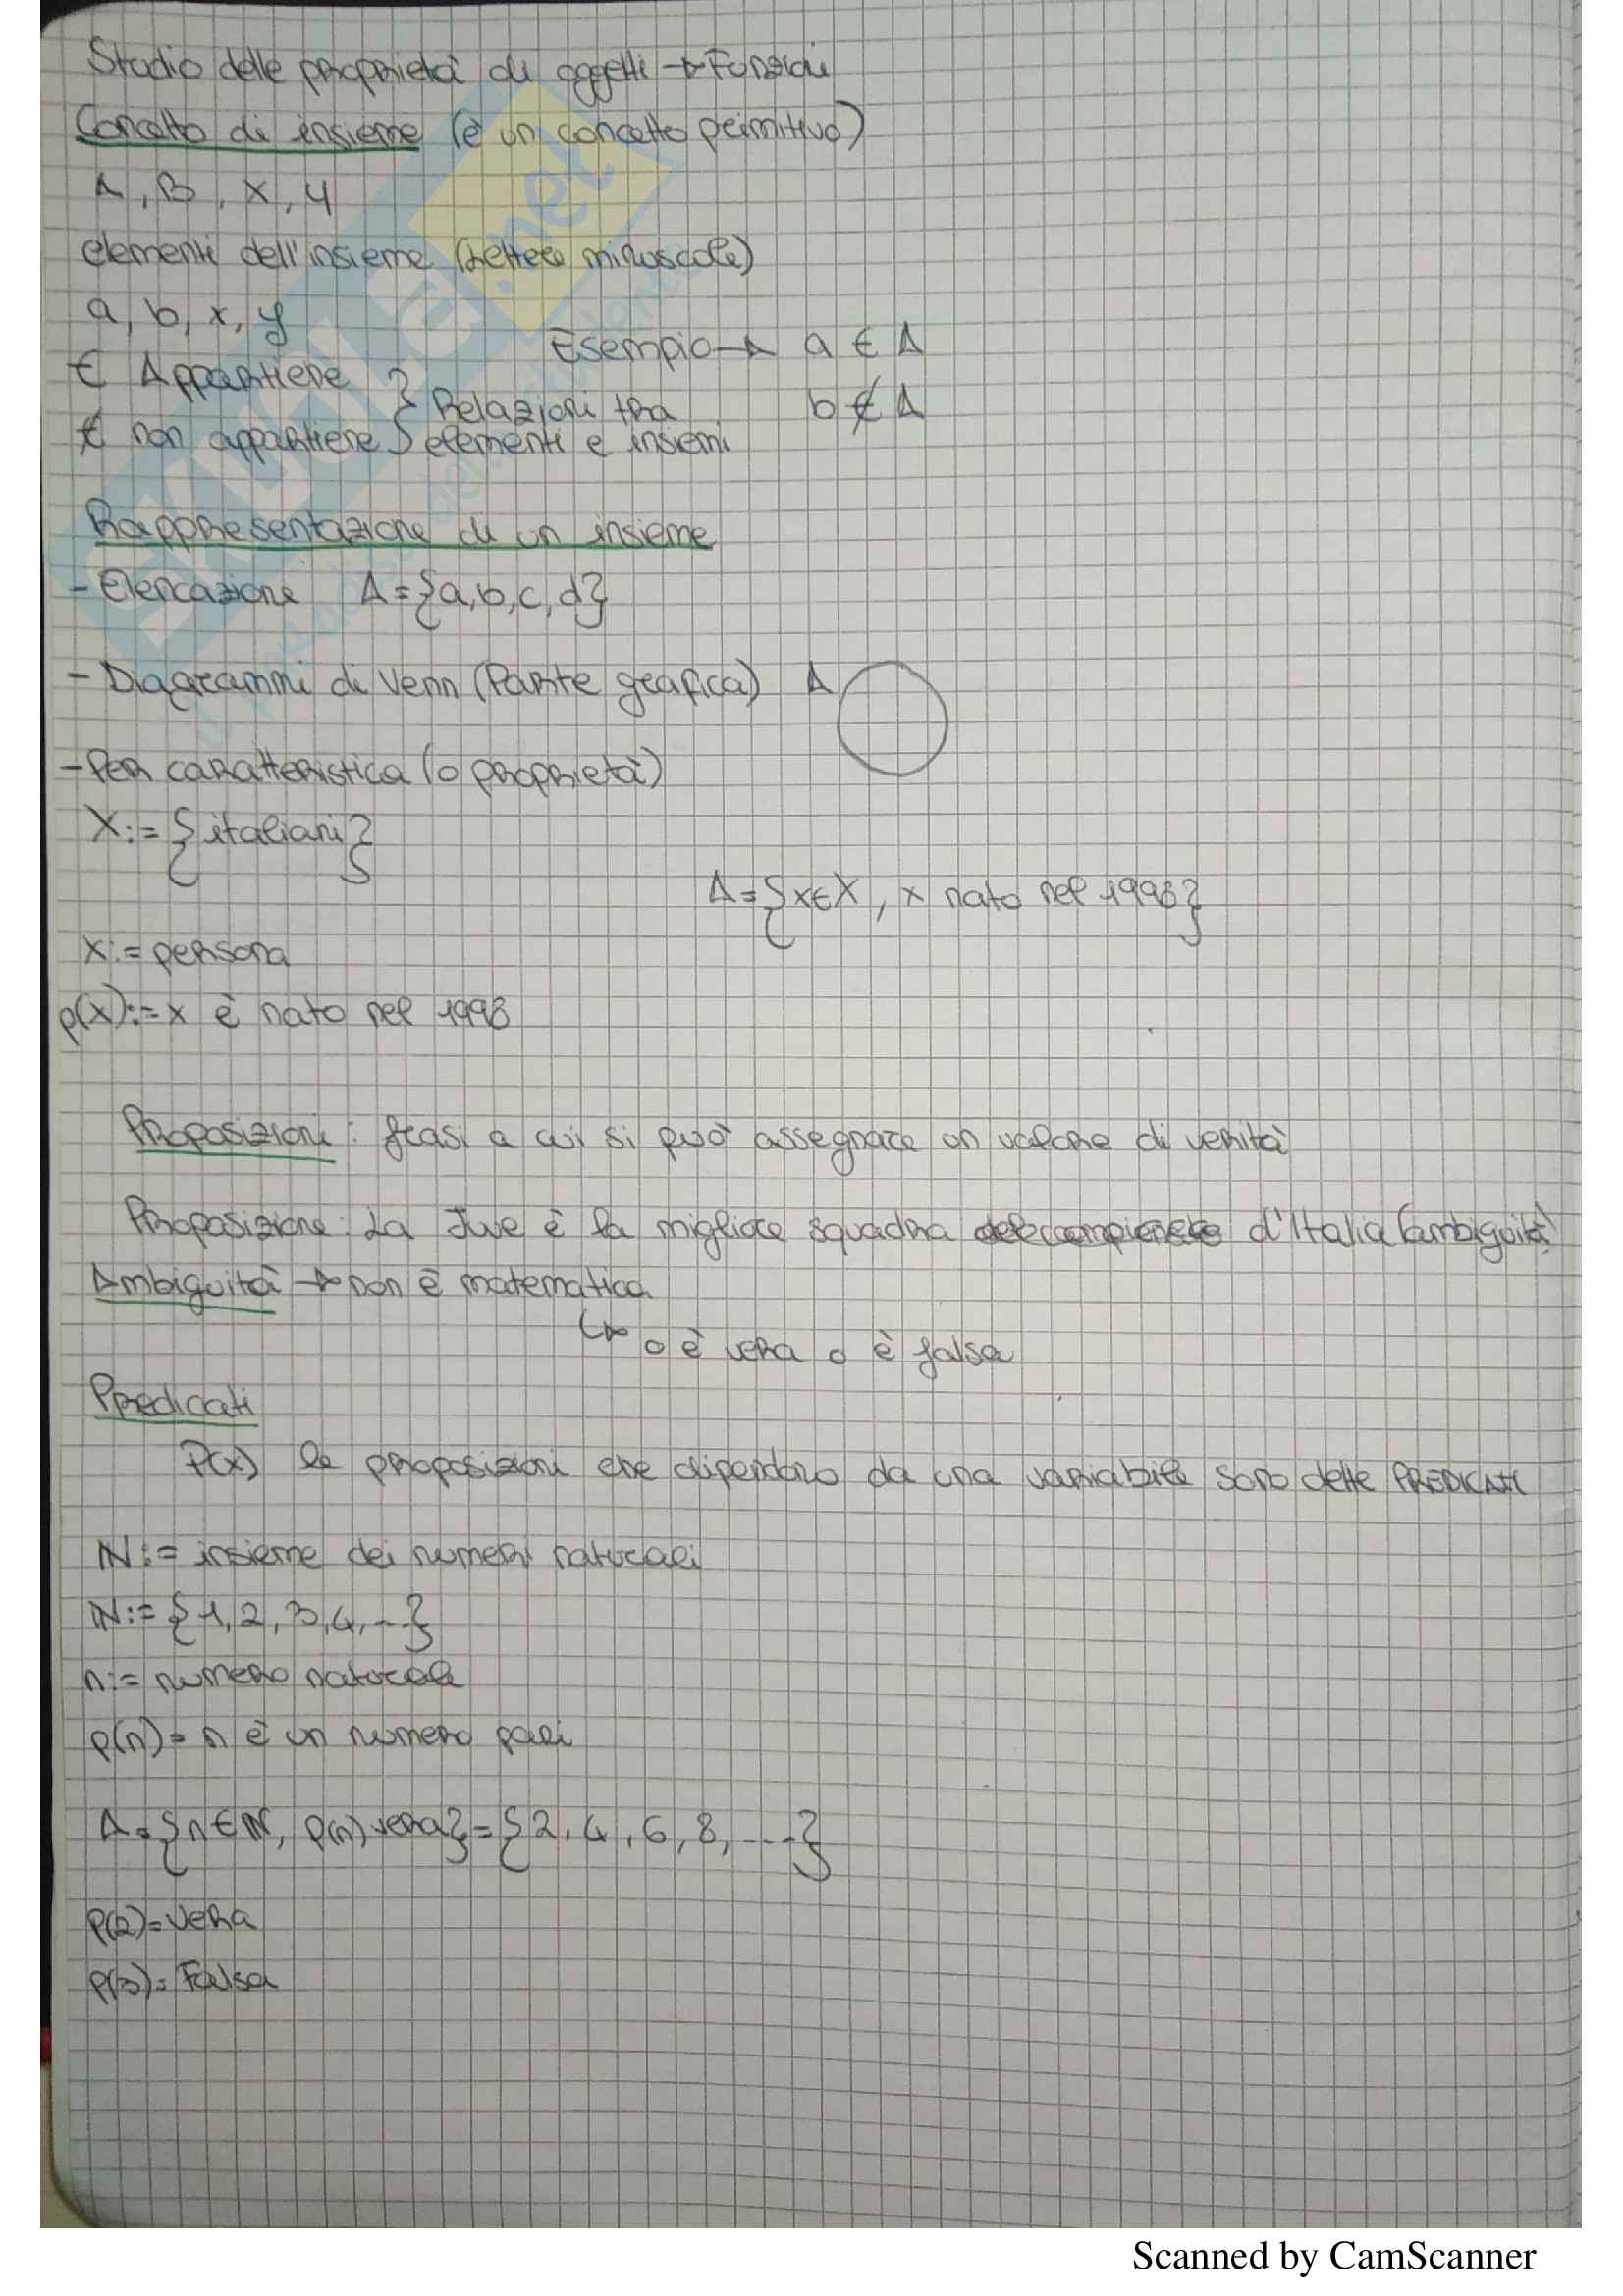 Studio delle proprietà di oggetti → Funzioni
Concetto di insieme (è un concetto primitivo)
A, B, X, Y
elementi dell'insieme (lettere minuscole)
a, b, x, y
Esempio → a ∈ A
∈ Appartiene
b ∉ A
∉ non appartiene } Relazioni tra elementi e insiemi
Rappresentazione di un insieme
- Elencazione A = {a, b, c, d}
- Diagrammi di Venn (Parte grafica) A
- Per caratteristica (o proprietà)
X := {italiani}
A = {x ∈ X, x nato nel 1998}
x := persona
p(x) := x è nato nel 1998
Proposizioni: frasi a cui si può assegnare un valore di verità
Proposizione: La Juve è la migliore squadra d'Italia (ambiguità)
Ambiguità → non è matematica
↳ o è vera o è falsa
Predicati
P(x) le proposizioni che dipendono da una variabile sono dette PREDICATI
ℕ := insieme dei numeri naturali
ℕ := {1, 2, 3, 4, ...}
n := numero naturale
p(n) = n è un numero pari
A = {n ∈ ℕ, p(n) vera} = {2, 4, 6, 8, ....}
p(2) = vera
p(3) = Falsa
Scanned by CamScanner